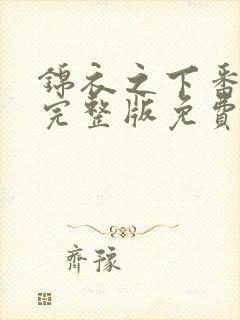 錦衣之下番
完整版免費
齊豫